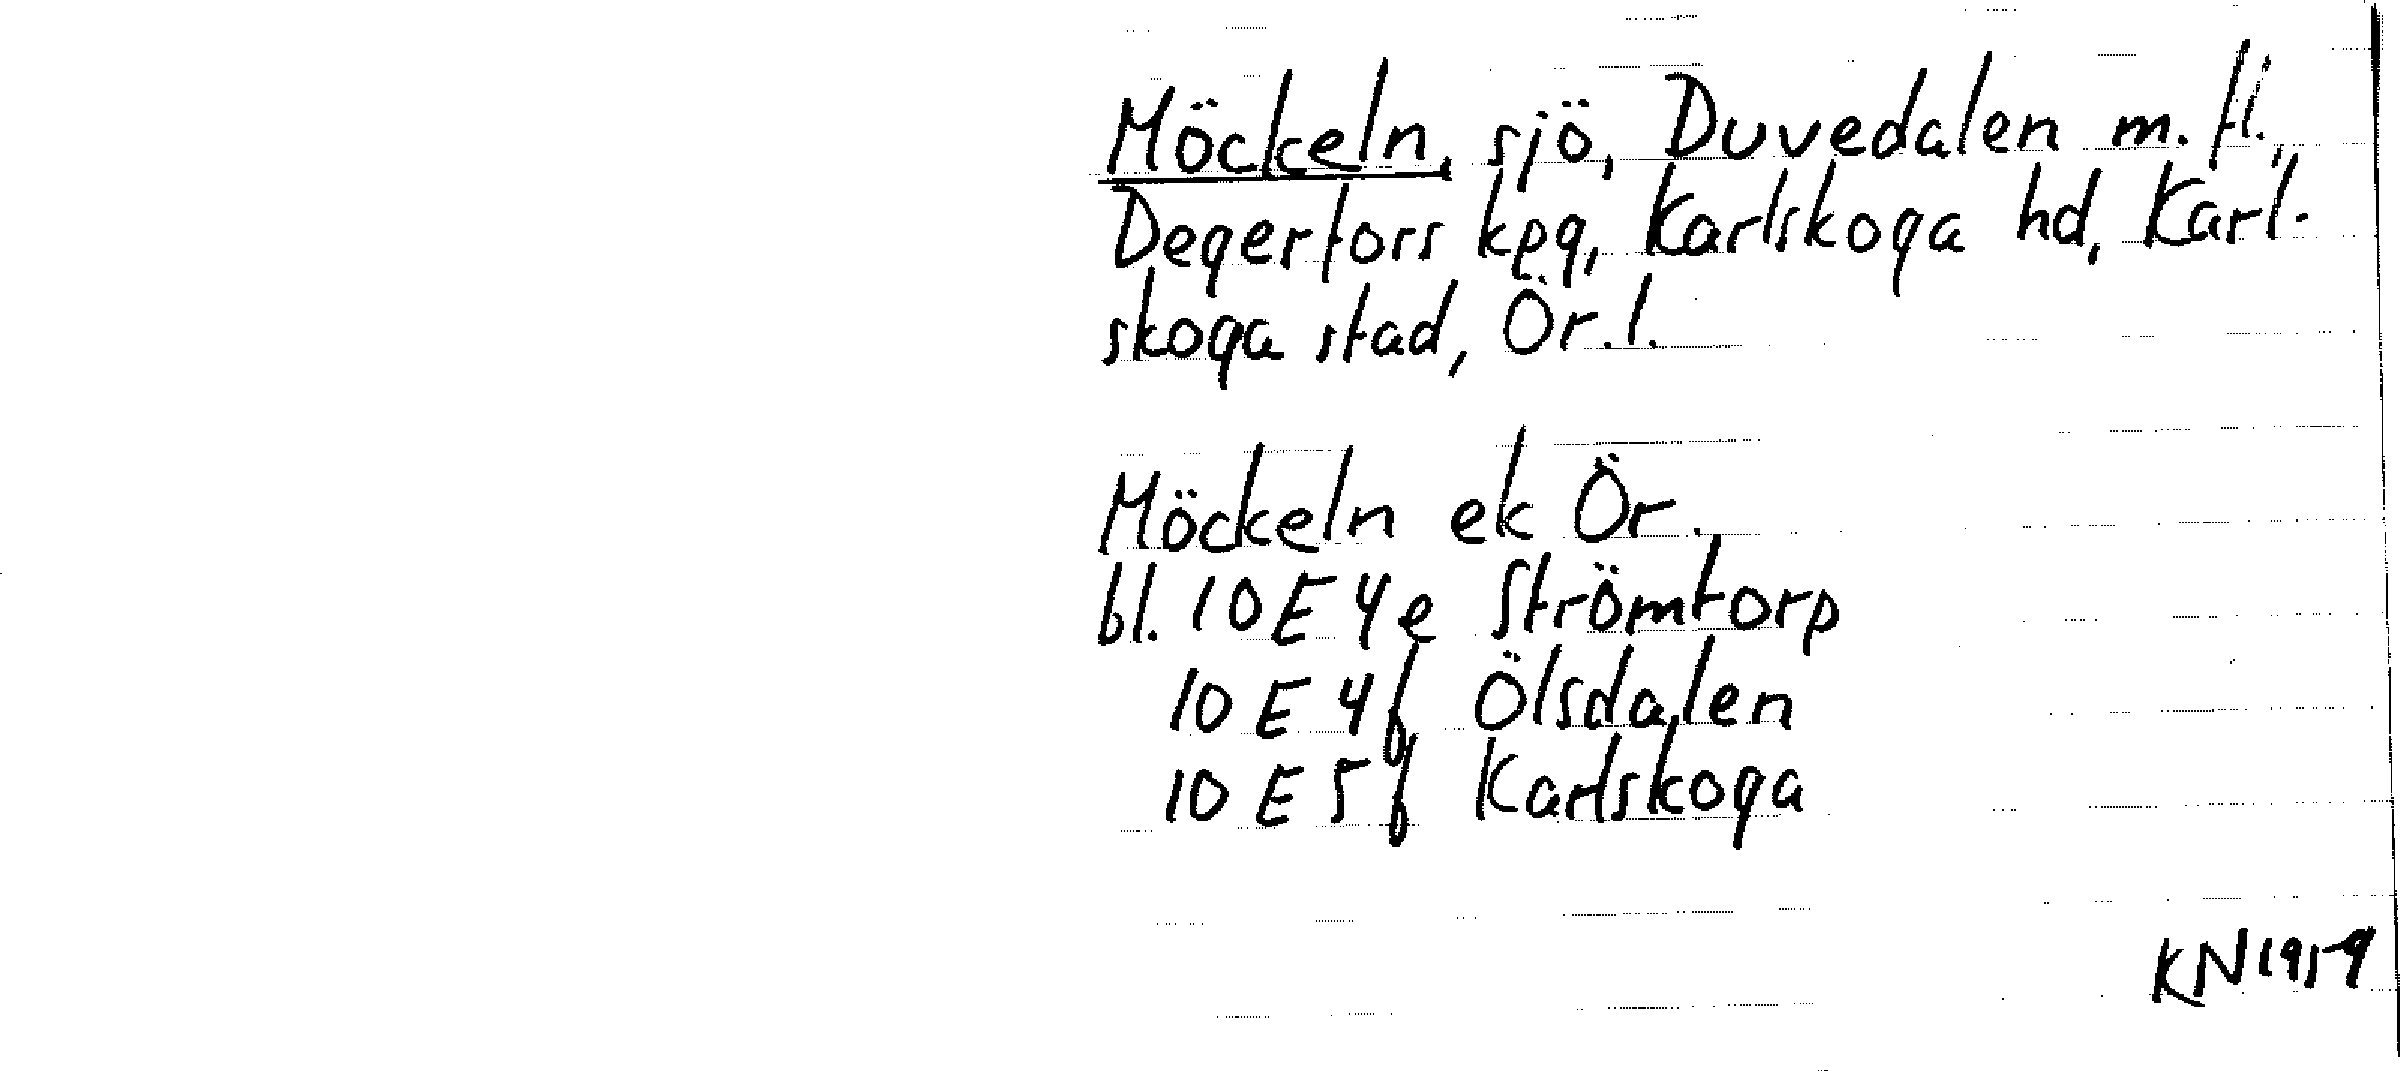 Möckeln, sjö, Duvedalen m. fl.,
Degerfors kpg, Karlskoga hd, Karl-
skoga stad, Ör. l.
Möckeln ek Ör.
bl. 10 E 4e Strömtorp
10 E 4f Ölsdalen
10 E 5f Karlskoga
KN 1959